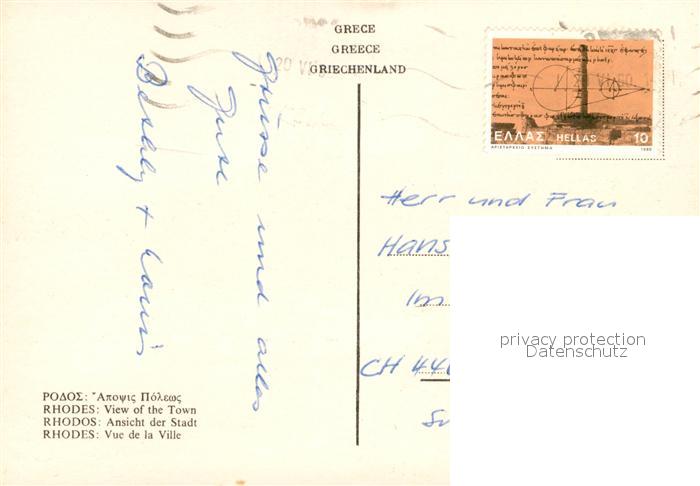 GRECE
GREECE
GRIECHENLAND
ΕΛΛΑΣ HELLAS 10
ΑΡΙΣΤΑΡΧΕΙΟ ΣΥΣΤΗΜΑ 1980
Grüsse und alles
Gute
+ Louis
Herr und Frau
Hans
Im
CH 44
privacy protection
Datenschutz
ΡΟΔΟΣ: Ἄποψις Πόλεως
RHODES: View of the Town
RHODOS: Ansicht der Stadt
RHODES: Vue de la Ville